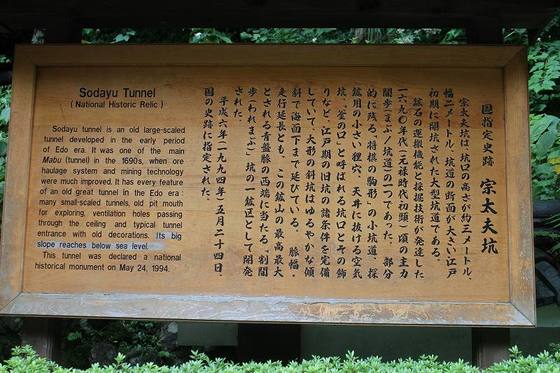 Sodayu Tunnel
( National Historic Relic )
Sodayu tunnel is an old large-scaled
tunnel developed in the early period
of Edo era. It was one of the main
Mabu (tunnel) in the 1690s, when ore
haulage system and mining technology
were much improved. It has every feature
of an old great tunnel in the Edo era :
many small-scaled tunnels, old pit mouth
for exploring, ventilation holes passing
through the ceiling and typical tunnel
entrance with old decorations. Its big
slope reaches below sea level.
This tunnel was declared a national
historical monument on May 24, 1994.
国指定史跡 宗太夫坑
宗太夫坑は、坑口の高さが約三メートル、
幅二メートル、坑道の断面が大きい江戸
初期に開坑された大型坑道である。
鉱石の運搬機能と採掘技術が発達した
一六九〇年代(元禄時代初頭)頃の主力
間歩(まぶ)坑道の一つであった。部分
的に残る、将棋の駒形)の小坑道、探
鉱用の小さい狸穴、天井に抜ける空気
坑、釜の口と呼ばれる坑口とその飾
りなど、江戸期の旧坑の諸条件を完備
していて、大形の斜坑はゆるやかな傾
斜で海面下まで延びている。 脈幅
走行延長とも、この鉱山の最高最大
とされる青盤脈の西端に当たる、割間
歩(われまぶ)坑の一鉱区として開発
された。
平成六年(一九九四年)五月二十四日、
国の史跡に指定された。